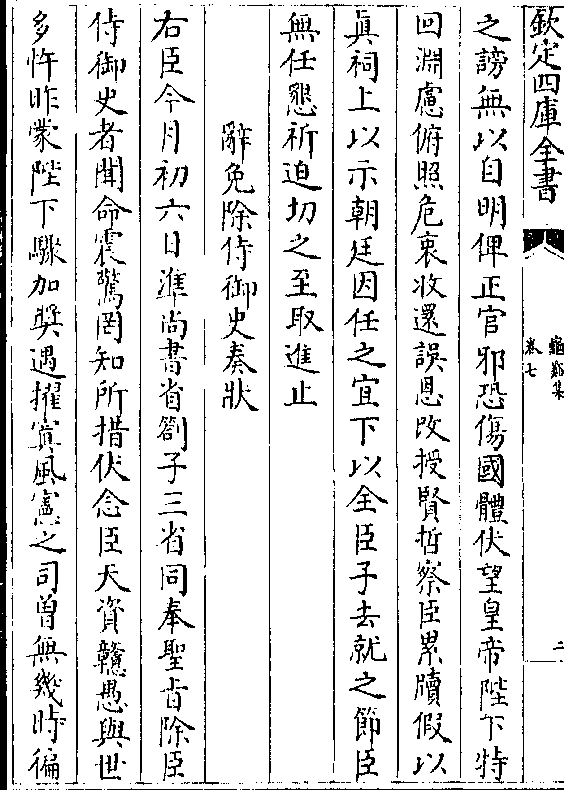 欽定四庫全書
龜谿集
卷七
二
之謗無以自明俾正官邪恐傷國體伏望皇帝陛下特
回淵慮俯照危衷收還誤恩改授賢哲察臣累牘假以
真祠上以示朝廷因任之宜下以全臣子去就之節臣
無任懇祈迫切之至取進止
辭免除侍御史奏狀
右臣今月初六日準尚書省劄子三省同奉聖旨除臣
侍御史者聞命震驚罔知所措伏念臣天資戇愚與世
多忤昨蒙陛下驟加奬遇擢寘風憲之司曾無幾時徧